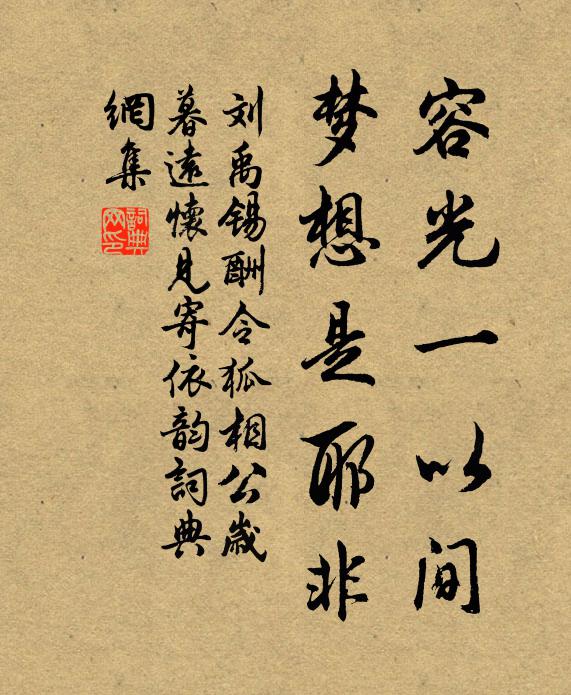 容光一以间
梦想是耶非
刘禹锡酬令狐相公岁
暮遠懷見寄依韵詞典
網集
詞典网印